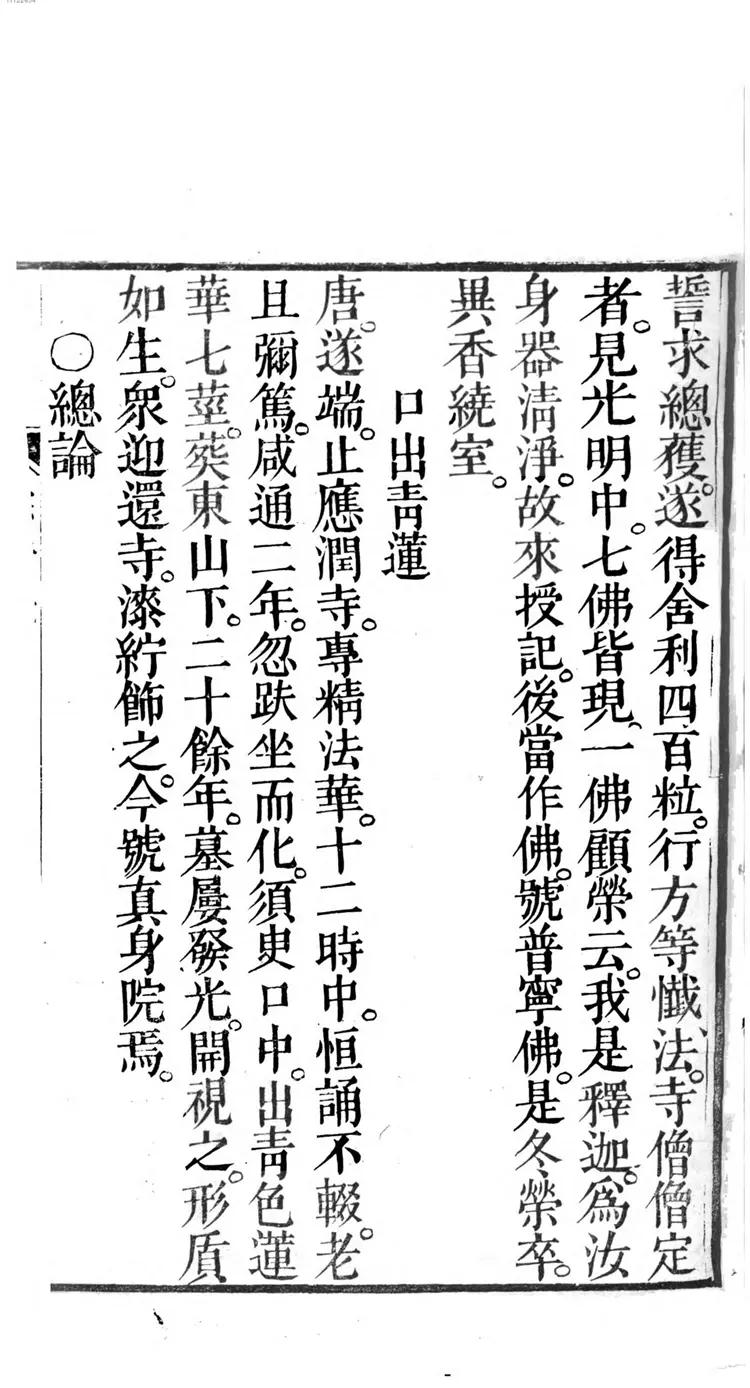 誓求總獲。遂得舍利四百粒。行方等懺法。寺僧僧定
者。見光明中。七佛皆現、一佛顧榮云。我是釋迦。爲汝
身器清淨。故來授記。後當作佛。號普寧佛。是冬榮卒。
異香繞室。
口出青蓮
唐。遂端。止應潤寺。專精法華。十二時中。恒誦不輟。老
且彌篤。咸通二年。忽趺坐而化。須臾口中。出青色蓮
華七莖。葬東山下。二十餘年。墓屢發光。開視之。形質
如生。衆迎還寺。漆紵飾之。今號真身院焉。
○總論